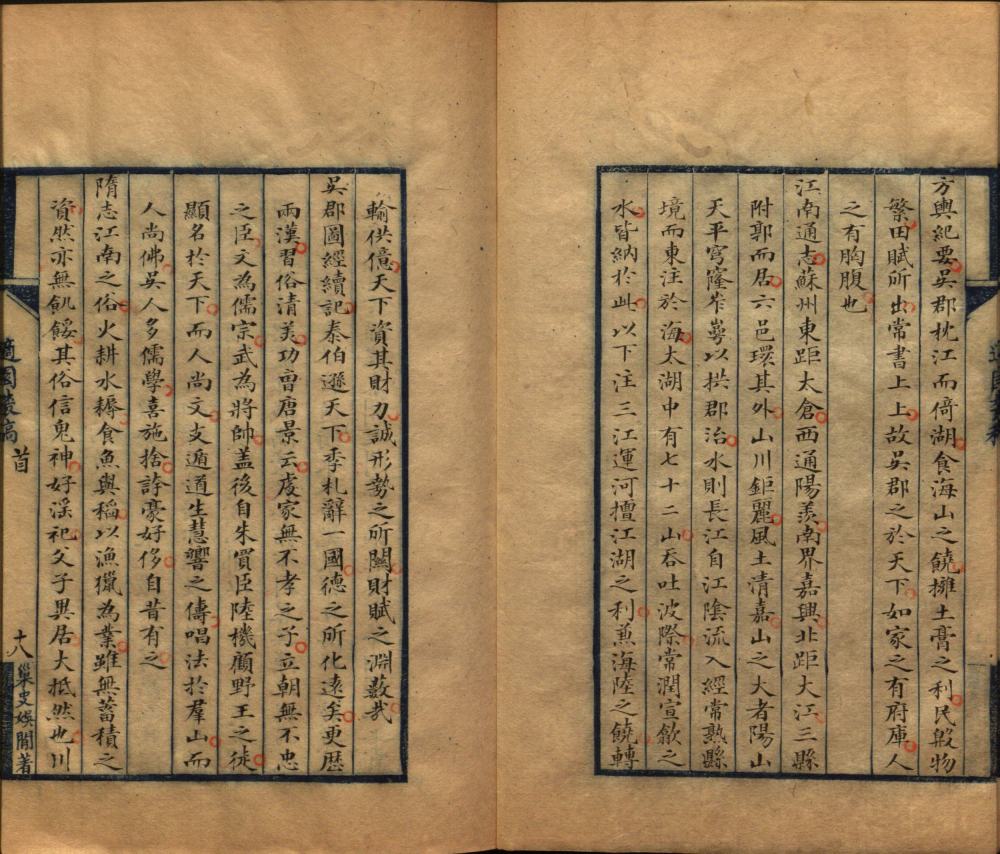 方輿紀要吳郡枕江而倚湖食海山之饒擁土膏之利民殷物
繁田賦所出常書上上故吳郡之於天下如家之有府庫人
之有胸腹也
江南通志蘇州東距太倉西通陽羨南界嘉興北距大江三縣
附郭而居六邑環其外山川鉅麗風土清嘉山之大者陽山
天平穹窿岝崿以拱郡治水則長江自江陰流入經常熟縣
境而東注於海太湖中有七十二山吞吐波際常潤宣歙之
水皆納於此以下注三江運河擅江湖之利兼海陸之饒轉
輸供億天下資其財力誠形勢之所關財賦之淵藪哉
吳郡圖經續記泰伯遜天下季札辭一國德之所化遠矣更歷
兩漢習俗清美功曹唐景云虞家無不孝之子立朝無不忠
之臣文為儒宗武為將帥蓋後自朱買臣陸機顧野王之徒
顯名於天下而人尚文支遁道生慧響之儔唱法於羣山而
人尚佛吳人多儒學喜施捨誇豪好侈自昔有之
隋志江南之俗火耕水耨食魚與稻以漁獵為業雖無蓄積之
資然亦無飢餒其俗信鬼神好淫祀父子異居大抵然也川
適園叢稿 首
十八
巢史娛閒著